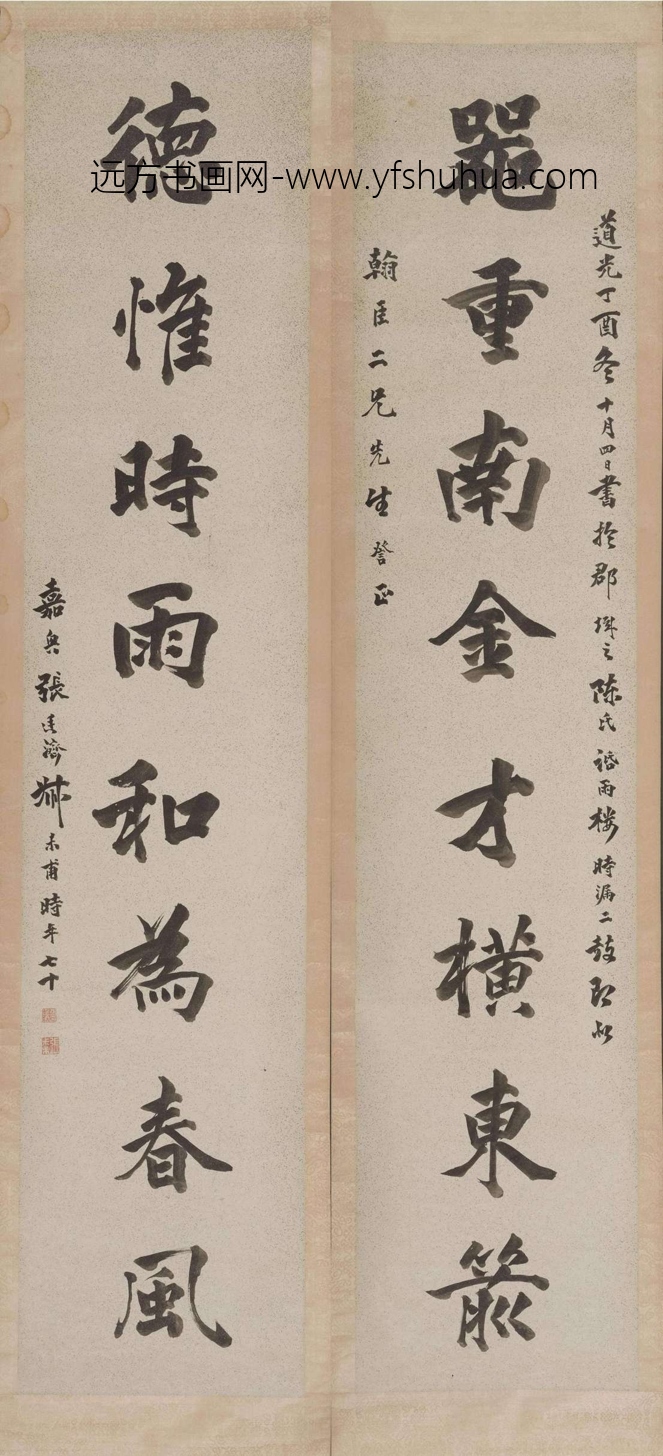 道光丁酉冬十月四日書於郡城之陳氏話雨樓時漏二鼓
器重南金才橫東箭
翰臣二兄先生詧正
德惟時雨和為春風
嘉興張廷濟叔未甫時年七十
远方书画网-www.yfshuhua.com